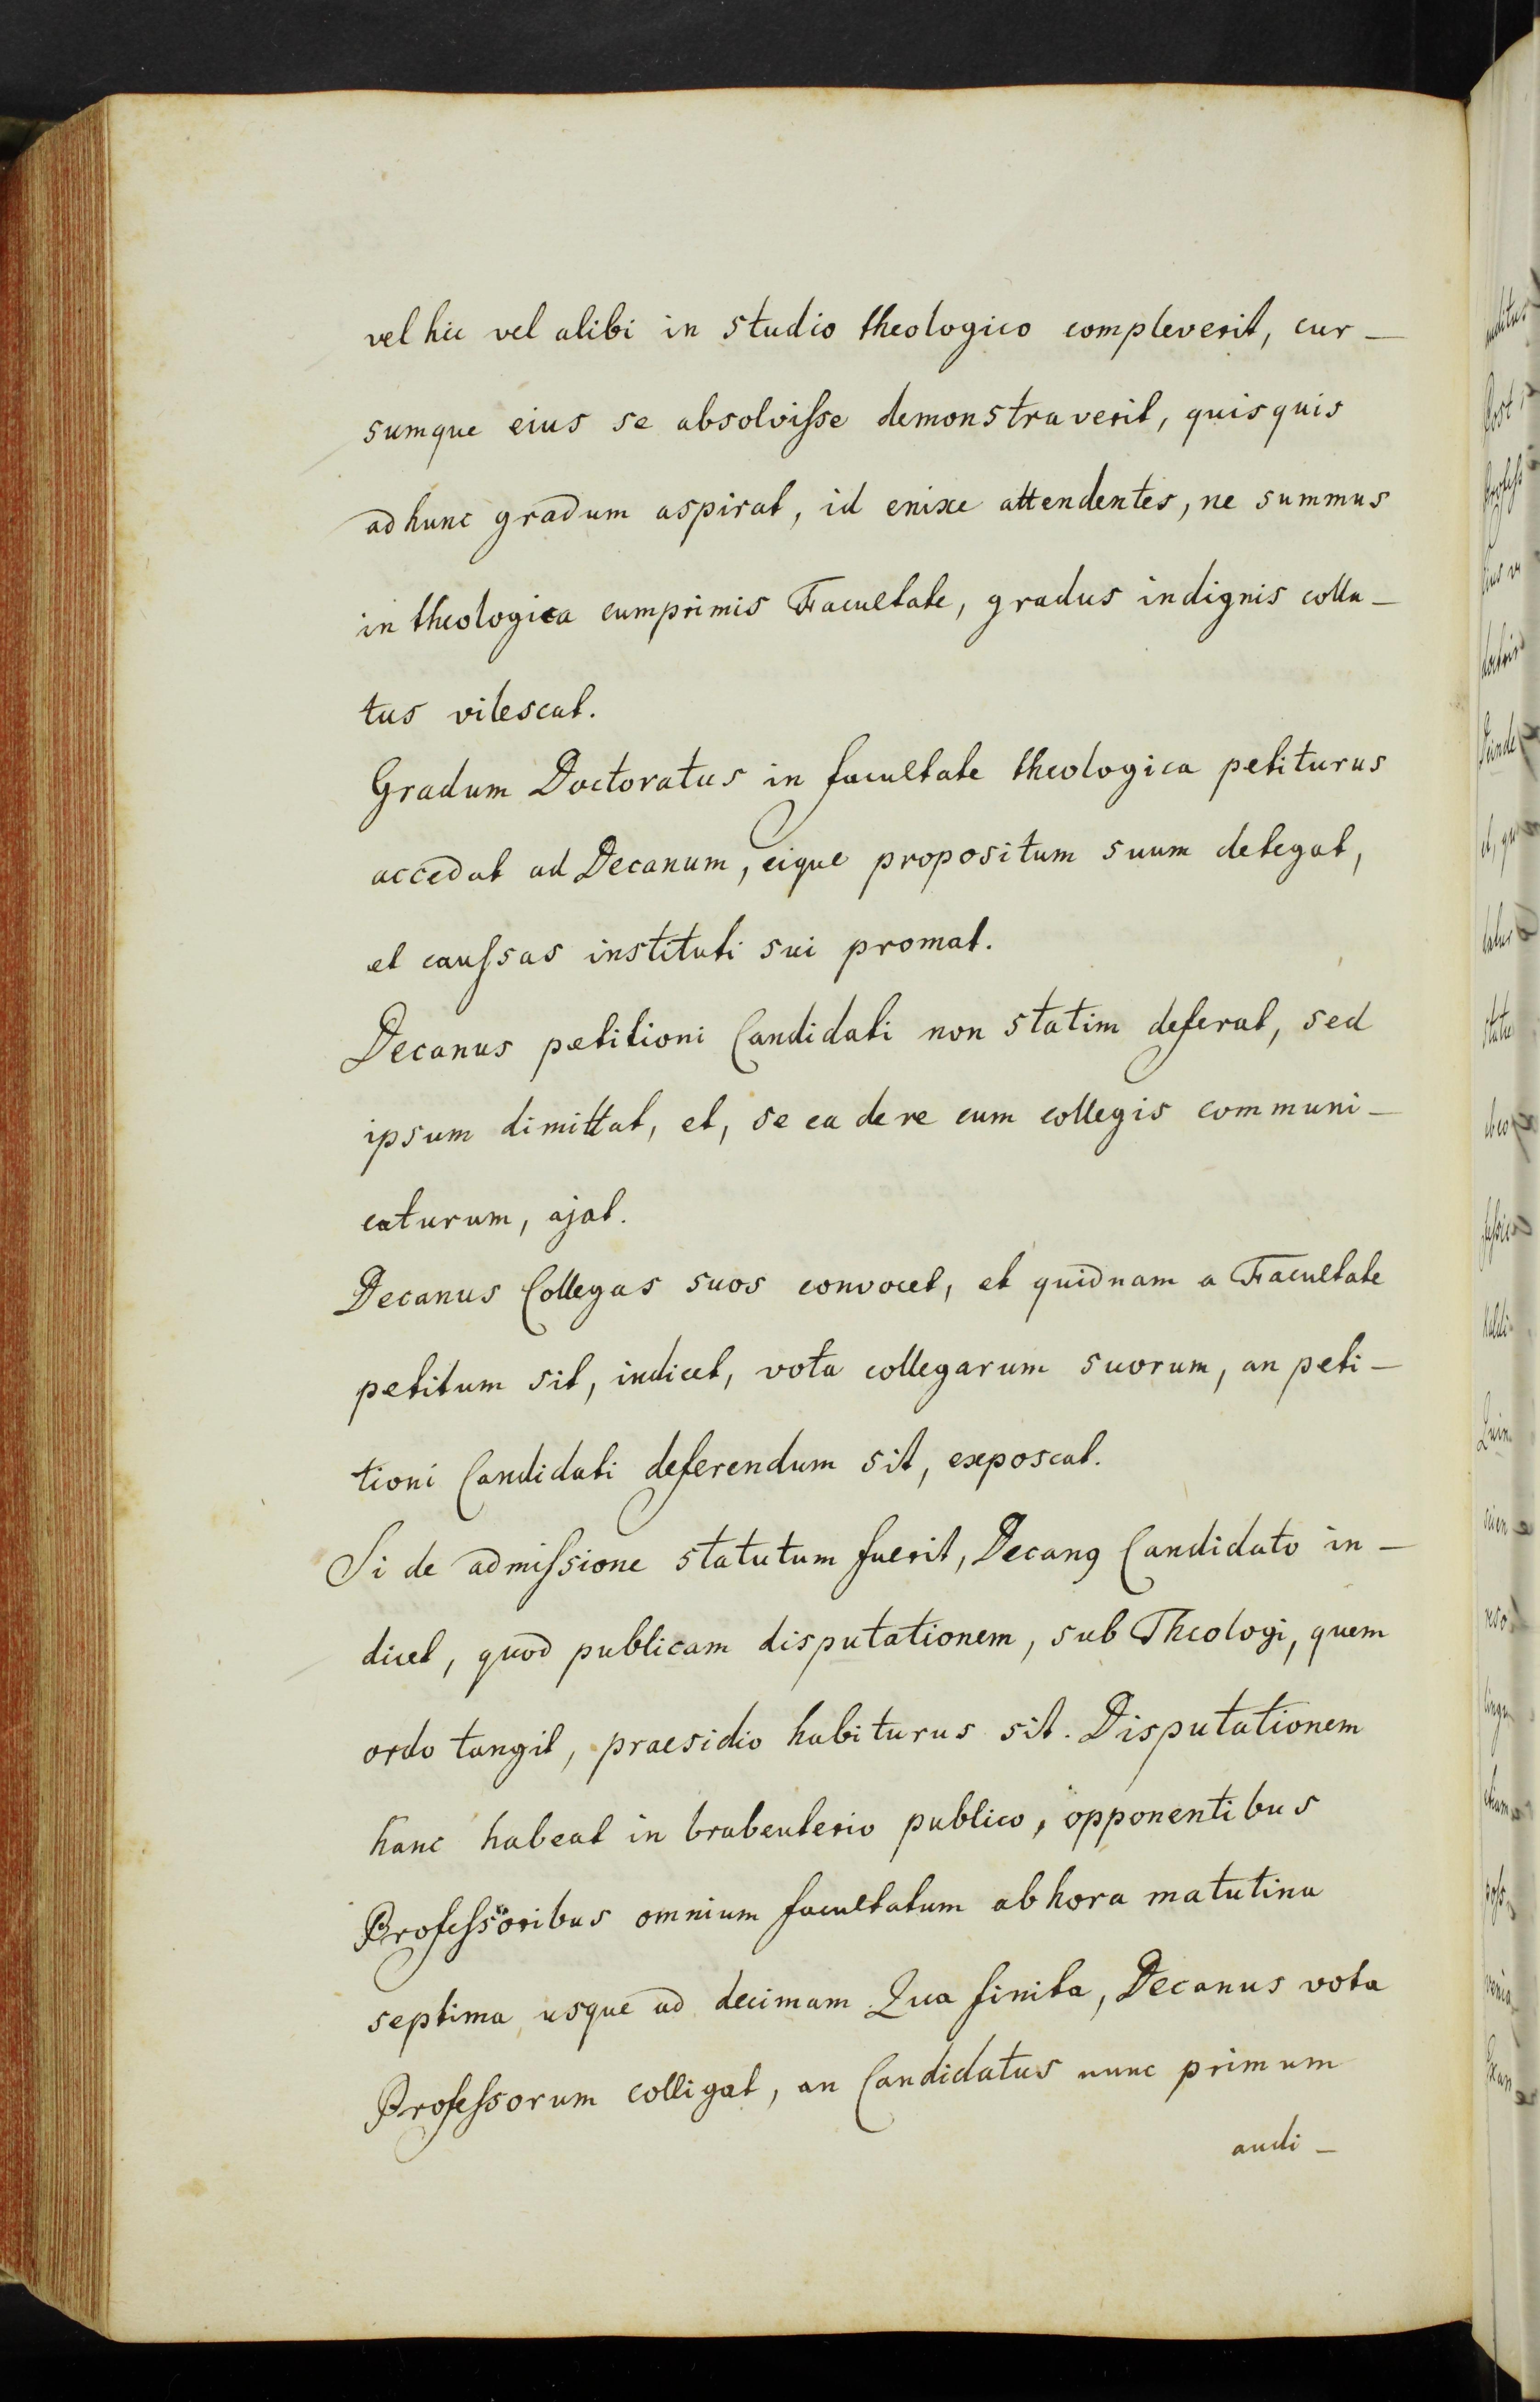 vel hic vel alibi in studio theologico compleverit, cur-
sumque eius se absolviſse demonstraverit, quisquis
ad hunc gradum aspirat, id enixe attendentes, ne summus
in theologica cumprimis Facultate, gradus indignis colla-
tus vilescat.
Gradum Doctoratus in facultate theologica petiturus
accedat ad Decanum, eique propositum suum detegat,
et cauſsas instituti sui promat.
Decanus petitioni Candidati non statim deferat, sed
ipsum dimittat, et, se ea de re cum collegis communi-
caturum, ajat.
Decanus Collegas suos convocet, et quidnam a Facultate
petitum sit, indicet, vota collegarum suorum, an peti-
tioni Candidati deferendum sit, exposcat.
Si de admiſsione statutum fuerit, Decanꝯ Candidato in-
dicet, quod publicam disputationem, sub Theologi, quem
ordo tangit, praesidio habiturus sit. Disputationem
hanc habeat in brabeuterio publico, opponentibus
Profeſsoribus omnium facultatum ab hora matutina
septima usque ad decimam. Qua finita, Decanus vota
Profeſsorum colligat, an Candidatus nunc primum
audi-